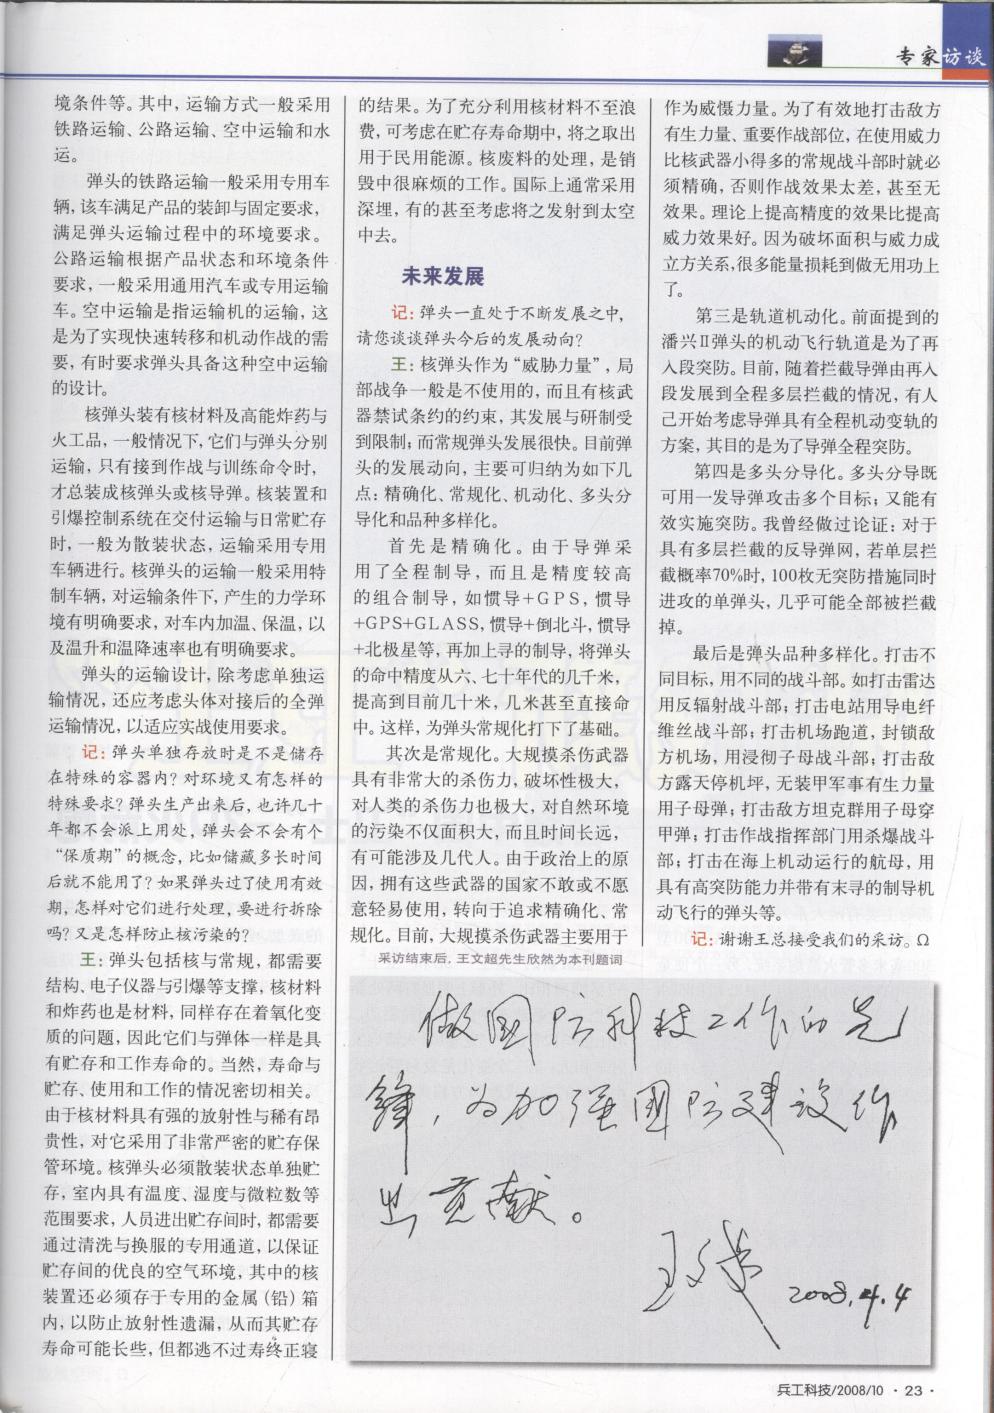 专家访谈
境条件等。其中，运输方式一般采用
铁路运输、公路运输、空中运输和水
运。
弹头的铁路运输一般采用专用车
辆，该车满足产品的装卸与固定要求，
满足弹头运输过程中的环境要求。
公路运输根据产品状态和环境条件
要求，一般采用通用汽车或专用运输
车。空中运输是指运输机的运输，这
是为了实现快速转移和机动作战的需
要，有时要求弹头具备这种空中运输
的设计。
核弹头装有核材料及高能炸药与
火工品，一般情况下，它们与弹头分别
运输，只有接到作战与训练命令时，
才总装成核弹头或核导弹。核装置和
引爆控制系统在交付运输与日常贮存
时，一般为散装状态，运输采用专用
车辆进行。核弹头的运输一般采用特
制车辆，对运输条件下，产生的力学环
境有明确要求，对车内加温、保温，以
及温升和温降速率也有明确要求。
弹头的运输设计，除考虑单独运
输情况，还应考虑头体对接后的全弹
运输情况，以适应实战使用要求。
记：弹头单独存放时是不是储存
在特殊的容器内？对环境又有怎样的
特殊要求？弹头生产出来后，也许几十
年都不会派上用处，弹头会不会有个
“保质期”的概念，比如储藏多长时间
后就不能用了？如果弹头过了使用有效
期，怎样对它们进行处理，要进行拆除
吗？又是怎样防止核污染的？
王：弹头包括核与常规，都需要
结构、电子仪器与引爆等支撑，核材料
和炸药也是材料，同样存在着氧化变
质的问题，因此它们与弹体一样是具
有贮存和工作寿命的。当然，寿命与
贮存、使用和工作的情况密切相关。
由于核材料具有强的放射性与稀有昂
贵性，对它采用了非常严密的贮存保
管环境。核弹头必须散装状态单独贮
存，室内具有温度、湿度与微粒数等
范围要求，人员进出贮存间时，都需要
通过清洗与换服的专用通道，以保证
贮存间的优良的空气环境，其中的核
装置还必须存于专用的金属（铅）箱
内，以防止放射性遗漏，从而其贮存
寿命可能长些，但都逃不过寿终正寝
的结果。为了充分利用核材料不至浪
费，可考虑在贮存寿命期中，将之取出
用于民用能源。核废料的处理，是销
毁中很麻烦的工作。国际上通常采用
深埋，有的甚至考虑将之发射到太空
中去。
未来发展
记：弹头一直处于不断发展之中，
请您谈谈弹头今后的发展动向？
王：核弹头作为“威胁力量”，局
部战争一般是不使用的，而且有核武
器禁试条约的约束，其发展与研制受
到限制；而常规弹头发展很快。目前弹
头的发展动向，主要可归纳为如下几
点：精确化、常规化、机动化、多头分
导化和品种多样化。
首先是精确化。由于导弹采
用了全程制导，而且是精度较高
的组合制导，如惯导+GPS，惯导
+GPS+GLASS，惯导+倒北斗，惯导
+北极星等，再加上寻的制导，将弹头
的命中精度从六、七十年代的几千米，
提高到目前几十米，几米甚至直接命
中。这样，为弹头常规化打下了基础。
其次是常规化。大规摸杀伤武器
具有非常大的杀伤力，破坏性极大，
对人类的杀伤力也极大，对自然环境
的污染不仅面积大，而且时间长远，
有可能涉及几代人。由于政治上的原
因，拥有这些武器的国家不敢或不愿
意轻易使用，转向于追求精确化、常
规化。目前，大规摸杀伤武器主要用于
作为威慑力量。为了有效地打击敌方
有生力量、重要作战部位，在使用威力
比核武器小得多的常规战斗部时就必
须精确，否则作战效果太差，甚至无
效果。理论上提高精度的效果比提高
威力效果好。因为破坏面积与威力成
立方关系，很多能量损耗到做无用功上
了。
第三是轨道机动化。前面提到的
潘兴Ⅱ弹头的机动飞行轨道是为了再
入段突防。目前，随着拦截导弹由再入
段发展到全程多层拦截的情况，有人
己开始考虑导弹具有全程机动变轨的
方案，其目的是为了导弹全程突防。
第四是多头分导化。多头分导既
可用一发导弹攻击多个目标；又能有
效实施突防。我曾经做过论证：对于
具有多层拦截的反导弹网，若单层拦
截概率70%时，100枚无突防措施同时
进攻的单弹头，几乎可能全部被拦截
掉。
最后是弹头品种多样化。打击不
同目标，用不同的战斗部。如打击雷达
用反辐射战斗部；打击电站用导电纤
维丝战斗部；打击机场跑道，封锁敌
方机场，用浸彻子母战斗部；打击敌
方露天停机坪，无装甲军事有生力量
用子母弹；打击敌方坦克群用子母穿
甲弹；打击作战指挥部门用杀爆战斗
部；打击在海上机动运行的航母，用
具有高突防能力并带有末寻的制导机
动飞行的弹头等。
记：谢谢王总接受我们的采访。Ω
采访结束后，王文超先生欣然为本刊题词
做国防科技工作的先
锋，为加强国防建设作
出贡献。
王文超
2008.4.4
兵工科技/2008/10 ·23·